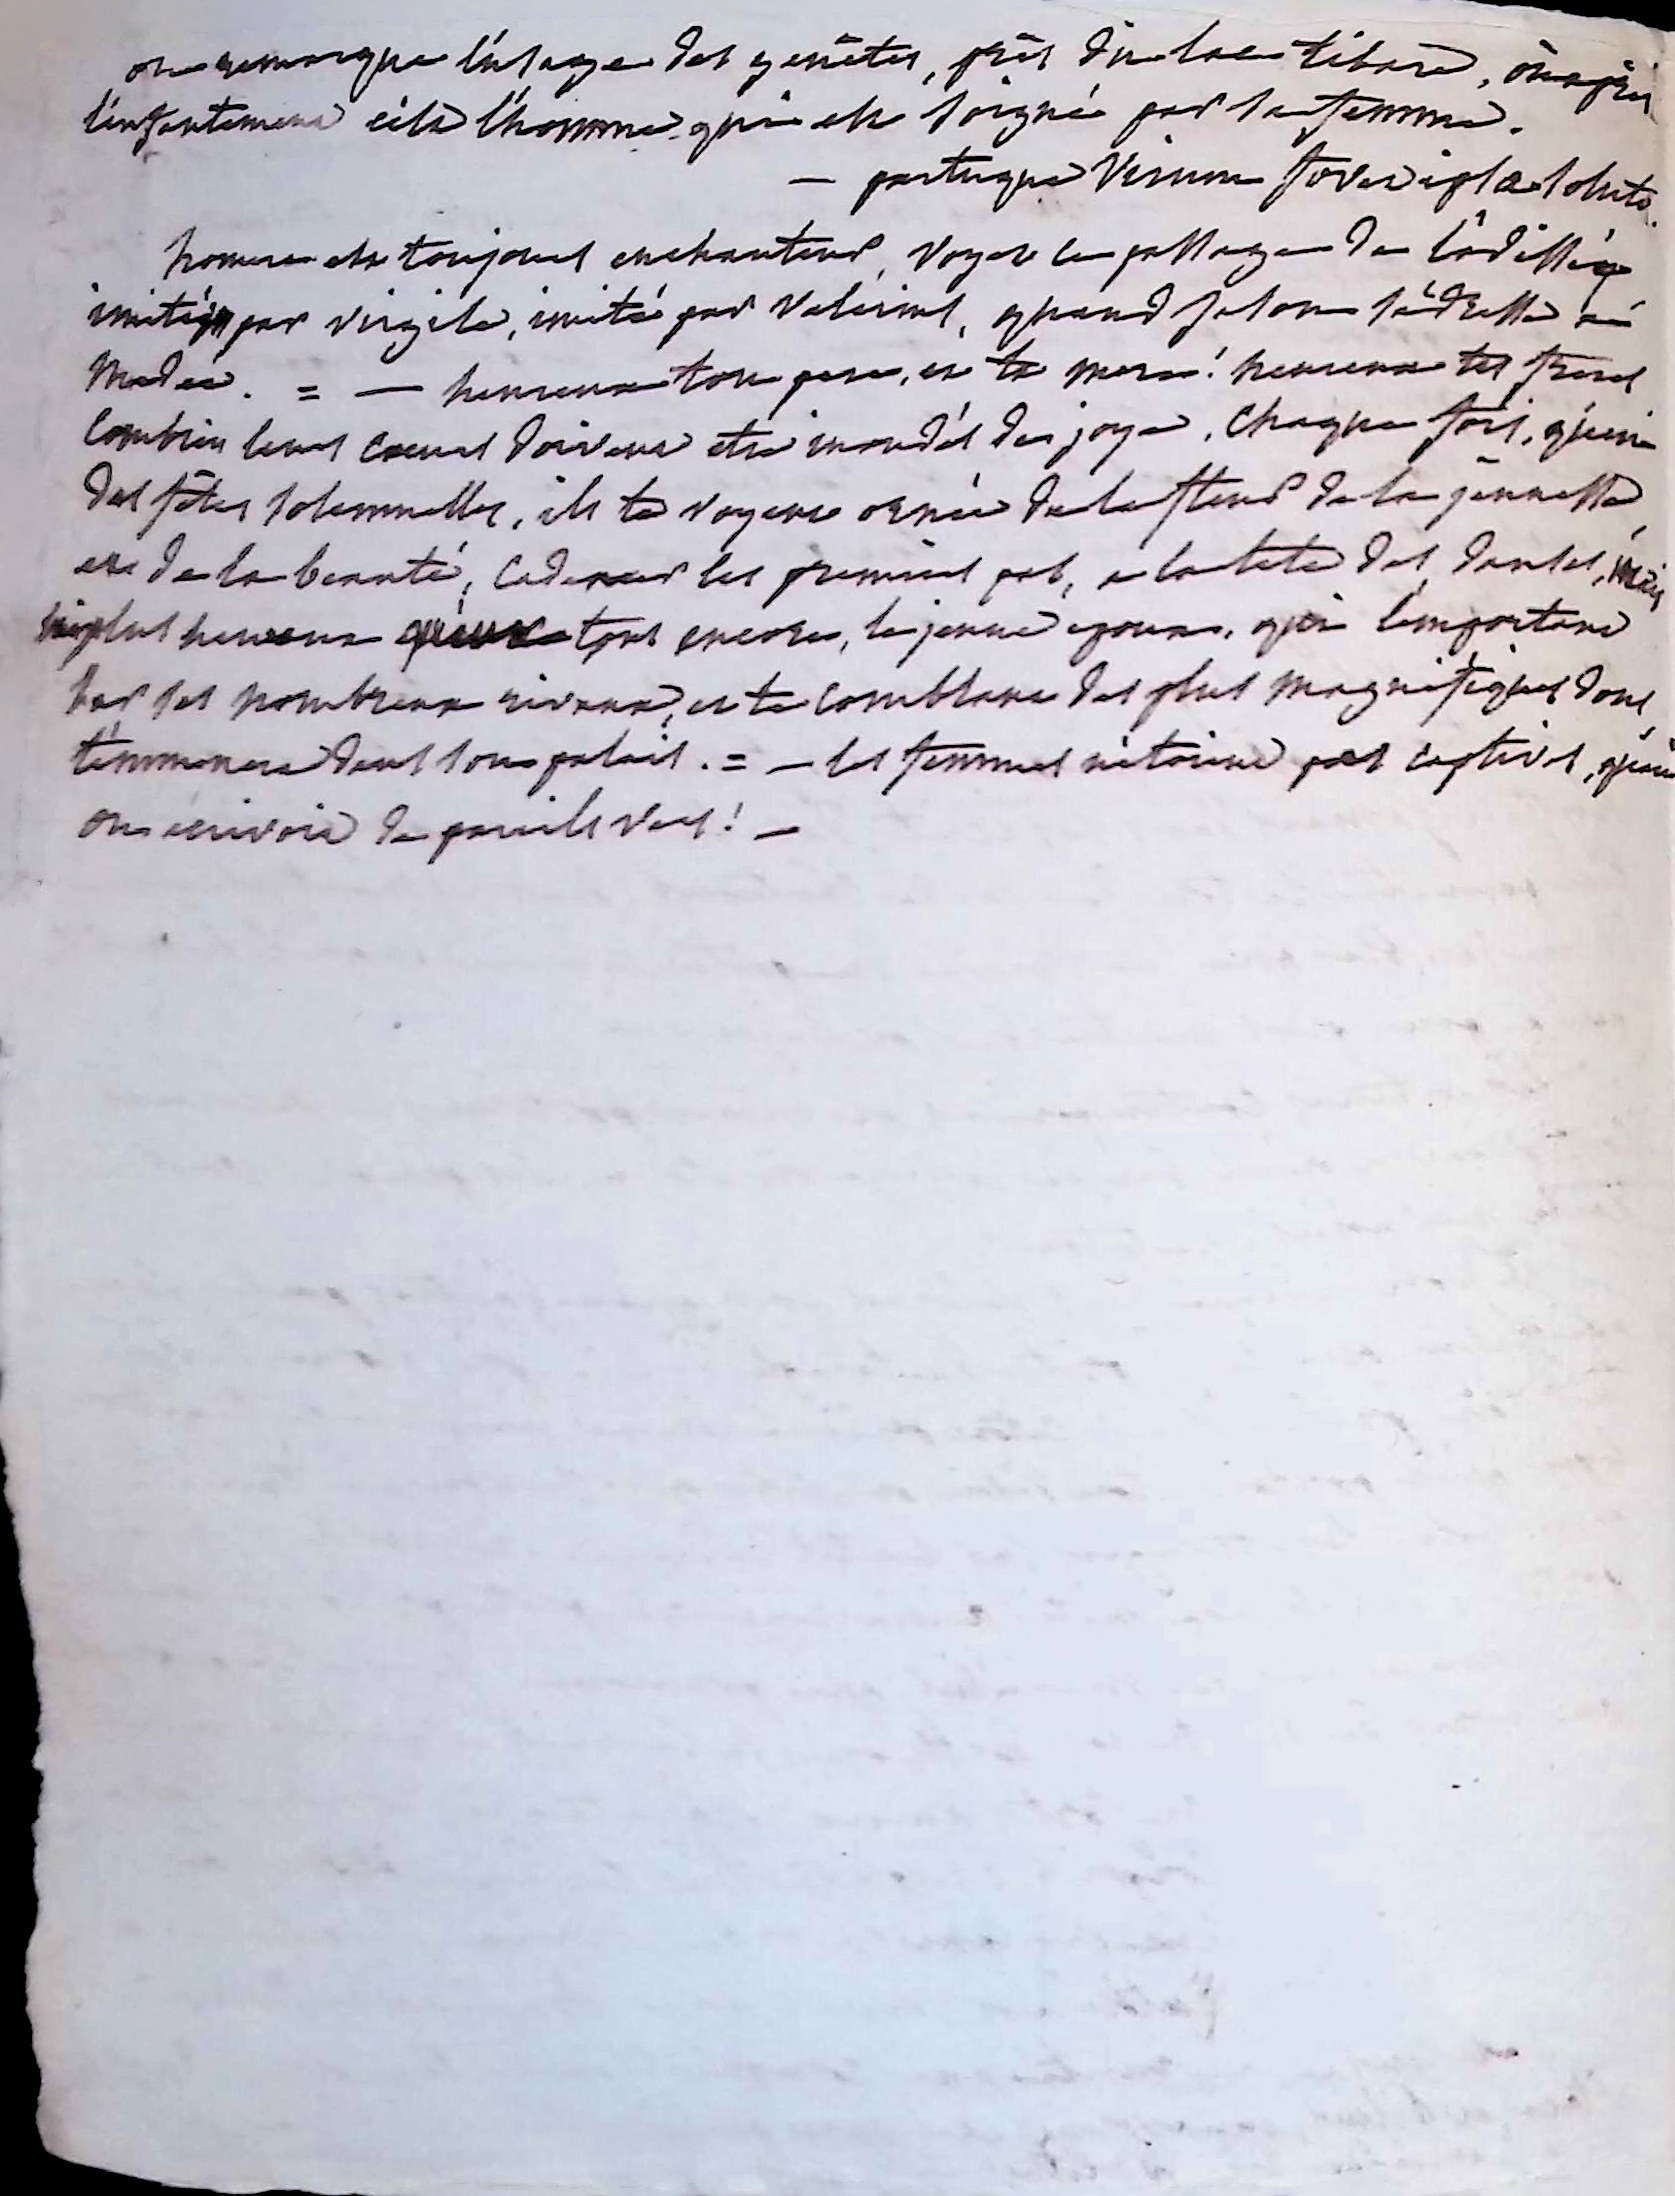 on remarque l'usage des genetes, près du lac tibare, où après
l'enfantement c'est l'homme qui est soigné par sa femme.
— partuque virum fovet ipsa soluto.
homere est toujours enchanteur, voyez le passage de l'odissée
imité par virgile, imité par valerius, quand jason s'adresse à
Medée. = — heureux ton pere, et ta mere! heureux tes freres
combien leurs coeurs doivent etre inondés de joye, chaque fois, qu'en
des fêtes solemnelles, ils te voyent ornée de la fleur de la jeunesse
et de la beauté, cadencer les premiers pas, a la tete des danses, mais
plus heureux qu'eux tous encore, le jeune epoux, qui l'emportant
sur ses nombreux rivaux, et te comblant des plus magnifiques dons
t'emmenera dans son palais. = — les femmes n'etoient pas captives, quand
on ecrivoit de pareils vers! —